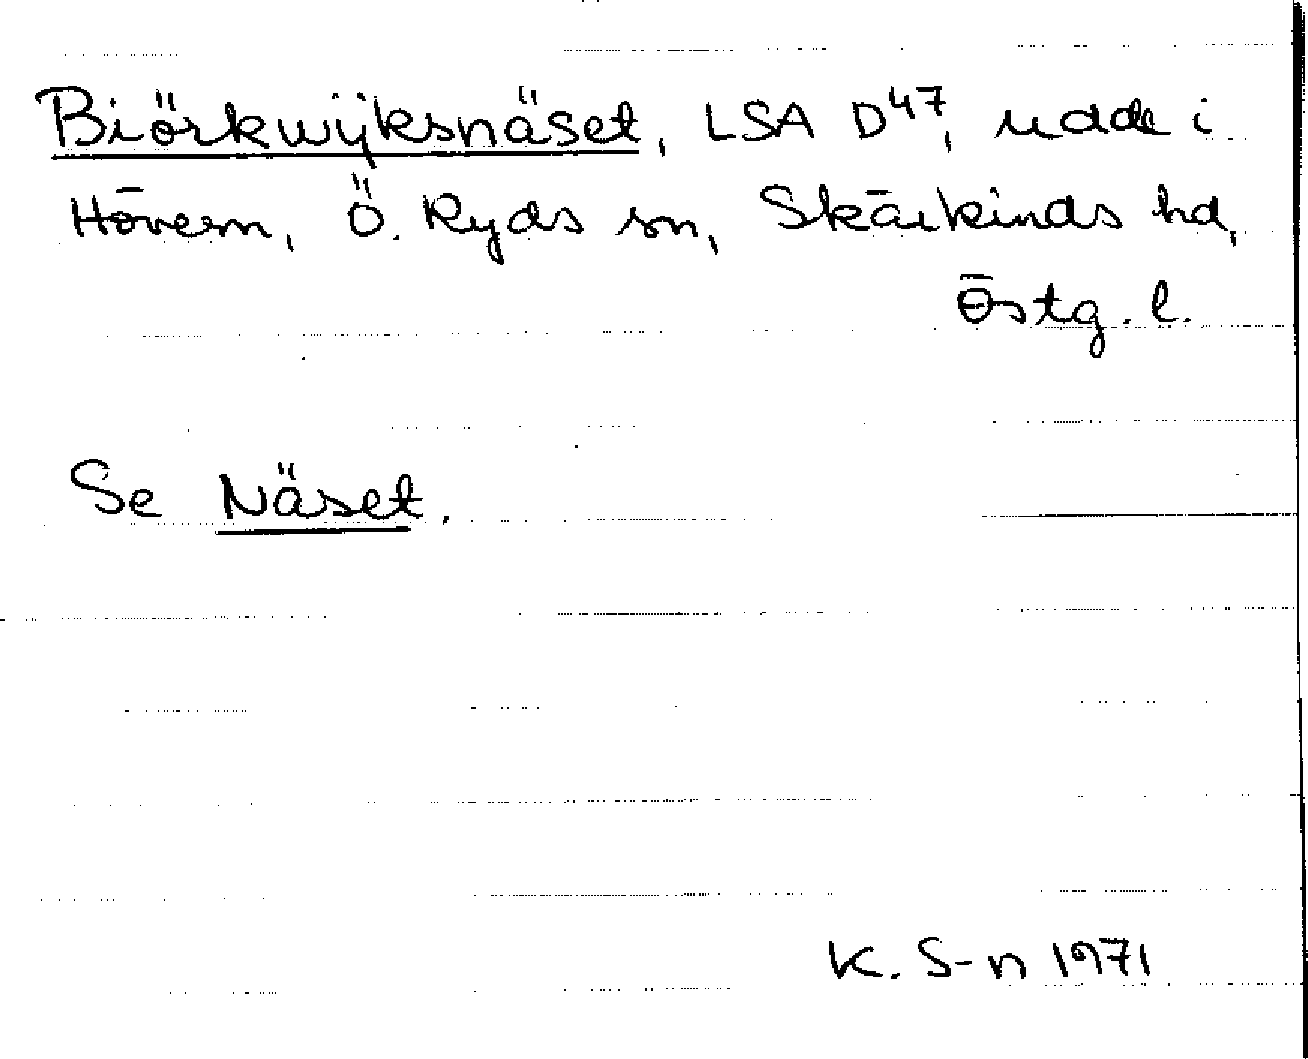 Biörkwÿksnäset, LSA D47, udde i
Hövern, Ö. Ryds sn, Skärkinds hd,
Östg. l.
Se Näset.
K. S-n 1971